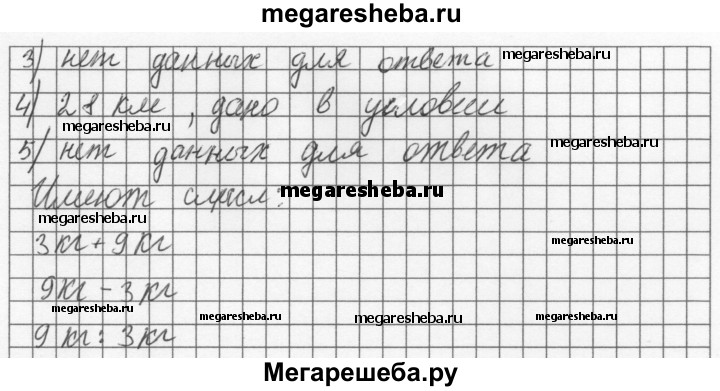 megaresheba.ru
3) нет данных для ответа megaresheba.ru
4) 28 км, дано в условии
megaresheba.ru megaresheba.ru
5) нет данных для ответа
Имеют смысл: megaresheba.ru
megaresheba.ru
3 кг + 9 кг megaresheba.ru
9 кг - 3 кг
megaresheba.ru megaresheba.ru
9 кг : 3 кг
Мегарешеба.ру